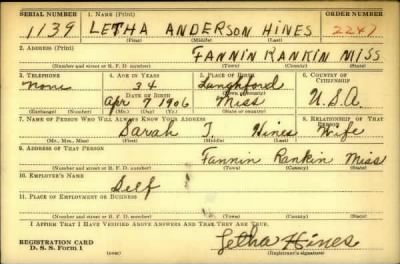 SERIAL NUMBER 1. NAME (Print) ORDER NUMBER
1139 LETHA ANDERSON HINES 2247
(First) (Middle) (Last)
2. ADDRESS (Print)
FANNIN RANKIN MISS
(Number and street or R. F. D. number) (Town) (County) (State)
3. TELEPHONE 4. AGE IN YEARS 5. PLACE OF BIRTH 6. COUNTRY OF CITIZENSHIP
None 34 Langhford
DATE OF BIRTH (Town or county)
Apr 7 1906 Miss U.S.A.
(Exchange) (Number) (Mo.) (Day) (Yr.) (State or country)
7. NAME OF PERSON WHO WILL ALWAYS KNOW YOUR ADDRESS 8. RELATIONSHIP OF THAT PERSON
Sarah T. Hines Wife
(Mr., Mrs., Miss) (First) (Middle) (Last)
9. ADDRESS OF THAT PERSON
Fannin Rankin Miss
(Number and street or R. F. D. number) (Town) (County) (State)
10. EMPLOYER'S NAME
Self
11. PLACE OF EMPLOYMENT OR BUSINESS
(Number and street or R. F. D. number) (Town) (County) (State)
I AFFIRM THAT I HAVE VERIFIED ABOVE ANSWERS AND THAT THEY ARE TRUE.
REGISTRATION CARD
D. S. S. Form 1 (over) Letha Hines
(Registrant's signature)